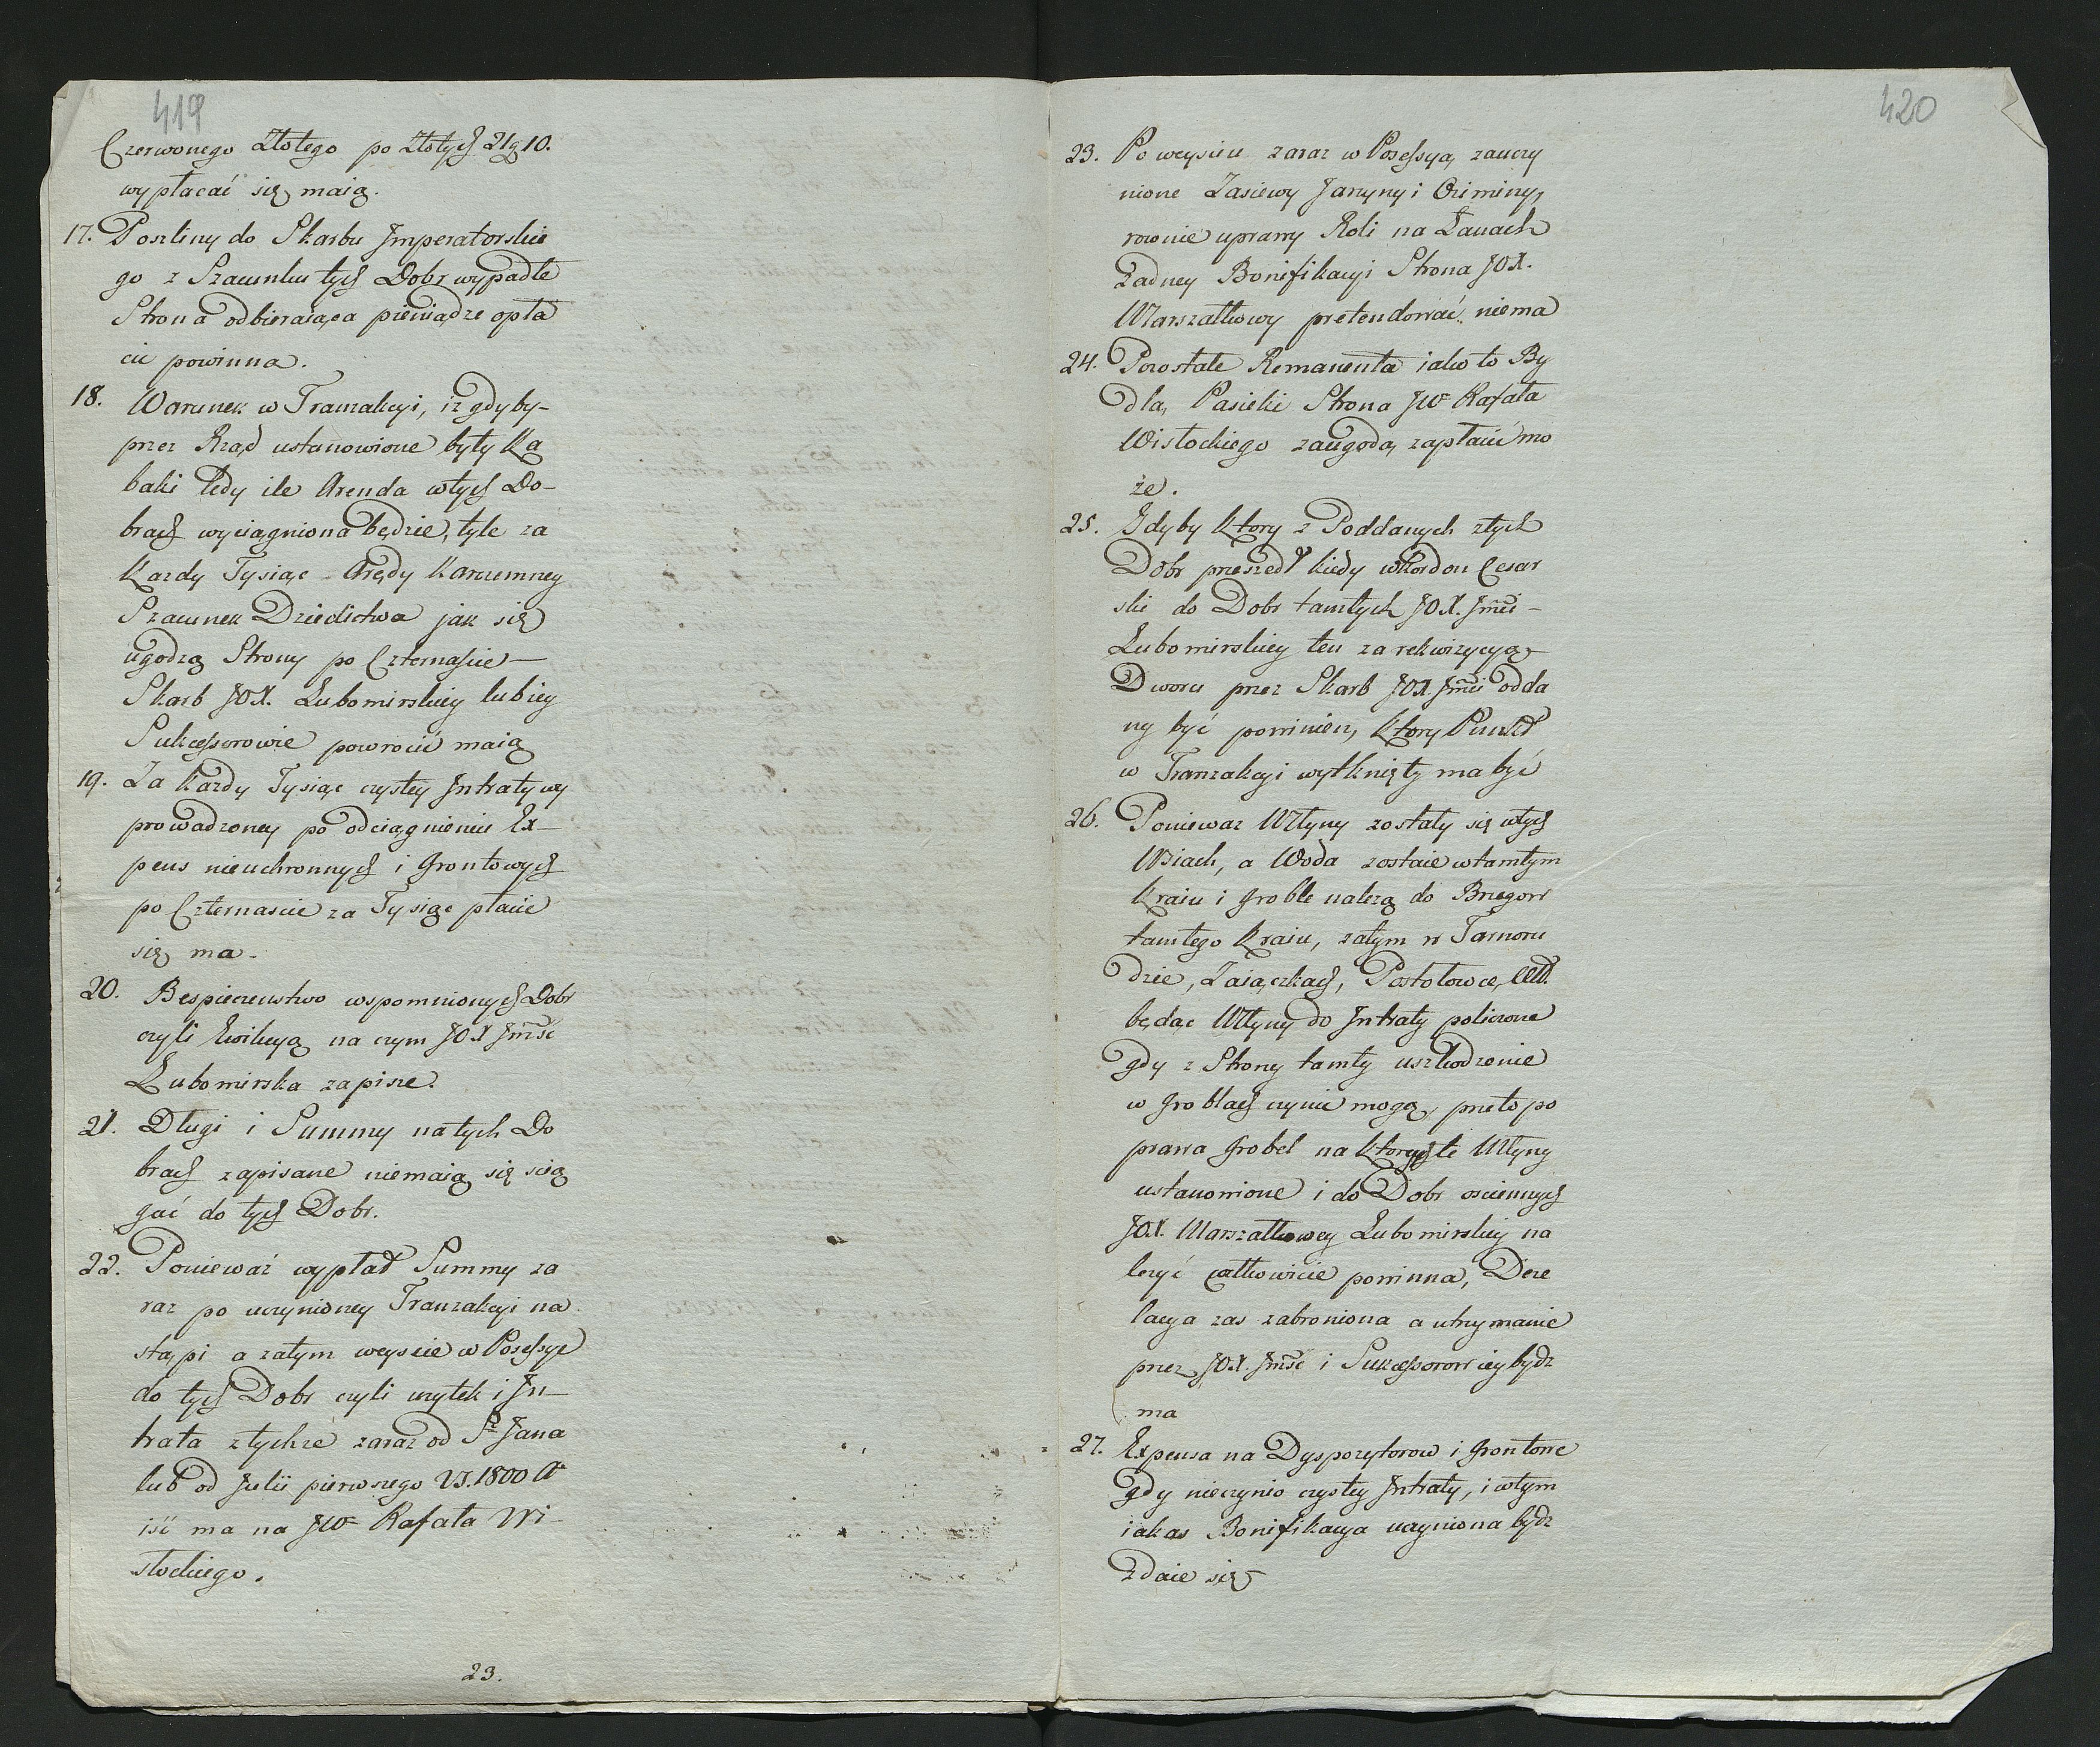 419
Czerwonego Złotego po Złotych 21 g 10.
wypłacać się maią.
17. Poszliny do Skarbu Imperatorskie
go z Szacunku tych Dobr wypadłe
Strona odbieraiąca pieniądze opła
cić powinna.
18. Warunek w Tranzakcyi, iż gdyby-
przez Rząd ustanowione były Ka
baki tedy ile Arenda w tych Do-
brach wyciągniona będzie, tyle za
Kazdy Tysiąc Arędy Karczemney
Szacunek Dziedictwa jak się
ugodzą Strony po Czternaście—
Skarb JOX. Lubomirskiey lub iey
Sukcessorowie powrocić maią
19. Za każdy Tysiąc czystey Intraty wy
prowadzoney po odciągnieniu Ex-
pens nieuchronnych i Grontowych
po Czternascie za Tysiąc płacić
się ma.
20. Bespieczenstwo wspomnionych Dobr
czyli Ewikcyą na czym JOX Jmść
Lubomirska zapisze.
21. Długi i Summy na tych Do
brach zapisane niemaią się scią
gać do tych Dobr.
22. Ponieważ wypłat Summy za
raz po uczynioney Tranzakcyi na
stąpi a zatym weyscie w Possessye
do tych Dobr czyli uzytek i In-
trata z tychże zaraz od S<sup>go</sup> Jana
lub od Julii pierwszego VS. 1800 A
iść ma na JW Rafała Wi-
słockiego.
23.
420
23. Po weysciu zaraz w Possessyą zauczy
nione Zasiewy Jarzyny i Oziminy,
rownie uprawy Roli na Łanach
Żadney Bonifikacyi Strona JOX.
Marszałkowy pretendować niema
24. Pozostałe Remanenta iako to By
dla, Pasieki Strona JW Rafała
Wisłockiego za ugodą zapłacić mo
że.
25. Gdyby Ktory z Poddanych z tych
Dobr przeszedł kiedy w Kordon Cesar
ski do Dobr tamtych JOX. Jmci-
Lubomirskiey ten za rekwizycyą
Dworu przez Skarb JOX. Jmci odda
ny być powinien, Ktory Punkt
w Tranzakcyi wytknięty ma być
26. Poniewaz Młyny zostały się w tych
Wsiach, a Woda zostaie w tamtym
Kraiu i Groble należą do Brzegow
tamtego Kraiu, zatym w Tarnoru
dzie, Zaiączkach, Postołowce,
będąc Młyny do Intraty policzone
gdy z Strony tamty uszkodzenie
w Groblach czynić mogą, przeto po
prawa Grobel na Ktorych te Młyny
ustanowione i do Dobr osciennych
JOX. Marszałkowey Lubomirskiey na
leżyć całkowicie powinna, Deze
lacya zas zabroniona a utrzymanie
przez JOX. Jmść i Sukcessorow iey bydz
ma
27. Expensa na Dyspozytorow i Grontowe
gdy nieczynio czystey Intraty, i w tym
iakas Bonifikacya uczyniona bydz
zdaie się